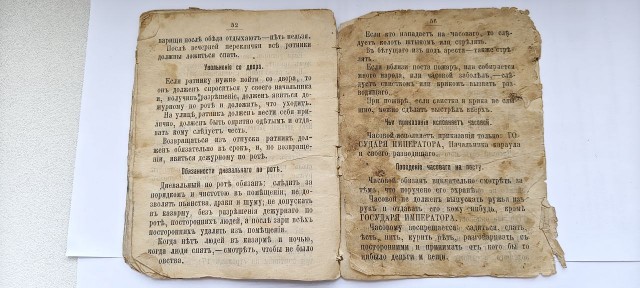 52
варищи послѣ обѣда отдыхаютъ—пѣть нельзя.
Послѣ вечерней переклички всѣ ратники
должны ложиться спать.
Увольненіе со двора.
Если ратнику нужно пойти со двора, то
онъ долженъ спроситься у своего начальника
и, получивъ разрѣшеніе, долженъ явиться де-
журному по ротѣ и доложить, что уходитъ.
На улицѣ ратникъ долженъ вести себя при-
лично, долженъ быть опрятно одѣтымъ и отда-
вать кому слѣдуетъ честь.
Возвращаться изъ отпуска ратникъ дол-
женъ обязательно въ срокъ, и, по возвраще-
ніи, явиться дежурному по ротѣ.
Обязанности дневальнаго по ротѣ.
Дневальный по ротѣ обязанъ: слѣдить за
порядкомъ и чистотою въ помѣщеніи; не до-
зволять пьянства, драки и шуму; не допускать
въ казарму, безъ разрѣшенія дежурнаго по
ротѣ, постороннихъ людей, а послѣ зари всѣхъ
постороннихъ удалять изъ помѣщенія.
Когда нѣтъ людей въ казармѣ и ночью,
когда люди спятъ,—смотрѣть, чтобы не было
овства.
56
Если кто нападаетъ на часового, то слѣ-
дуетъ колоть штыкомъ или стрѣлять.
Въ бѣгущаго изъ подъ ареста—также стрѣ-
лять.
Если вблизи поста пожаръ, или собирается
много народа, или часовой заболѣлъ,—слѣ-
дуетъ свисткомъ или крикомъ вызвать раз-
водящаго.
При пожарѣ, если свистка и крика не слы-
шно, можно сдѣлать выстрѣлъ вверхъ.
Чьи приказанія исполняетъ часовой.
Часовой исполняетъ приказанія только ГО-
СУДАРЯ ИМПЕРАТОРА, Начальника караула
и своего разводящаго.
на посту.
Часовой обязанъ внимательно смотрѣть за
тѣмъ, что поручено его охранѣ.
Часовой не долженъ выпускать ружья изъ
рукъ и отдавать его кому-нибудь, кромѣ
ГОСУДАРЯ ИМПЕРАТОРА.
Часовому воспрещается: садиться, спать,
ѣсть, пить, курить, пѣть, разговаривать съ
посторонними и принимать отъ кого бы то
нибыло деньги и вещи.